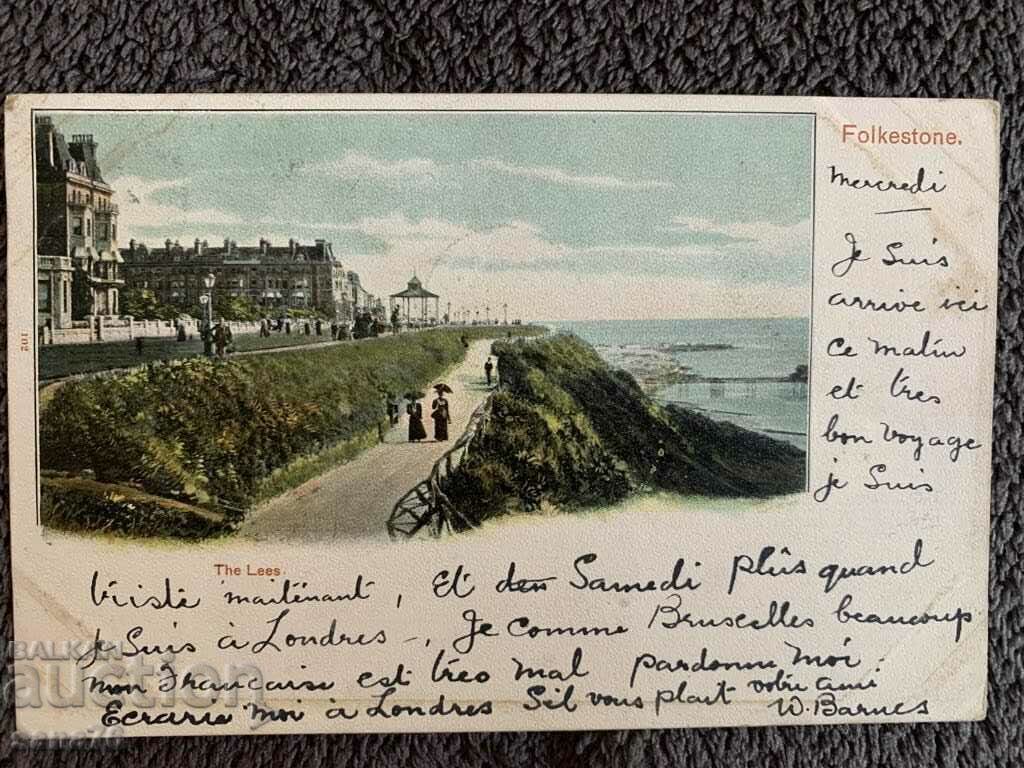 Folkestone.
Mercredi
Je Suis
arrive ici
ce matin
et très
bon voyage
je Suis
102
The Lees.
triste maiténant, Et den Samedi plûs quand
Je Suis à Londres -, Je comme Bruxselles beaucoup
mon Française est tres mal pardonne moi.
Ecrarie moi à Londres Sil vous plait votre ami
W. Barnes
BALKAN
auction
sana76